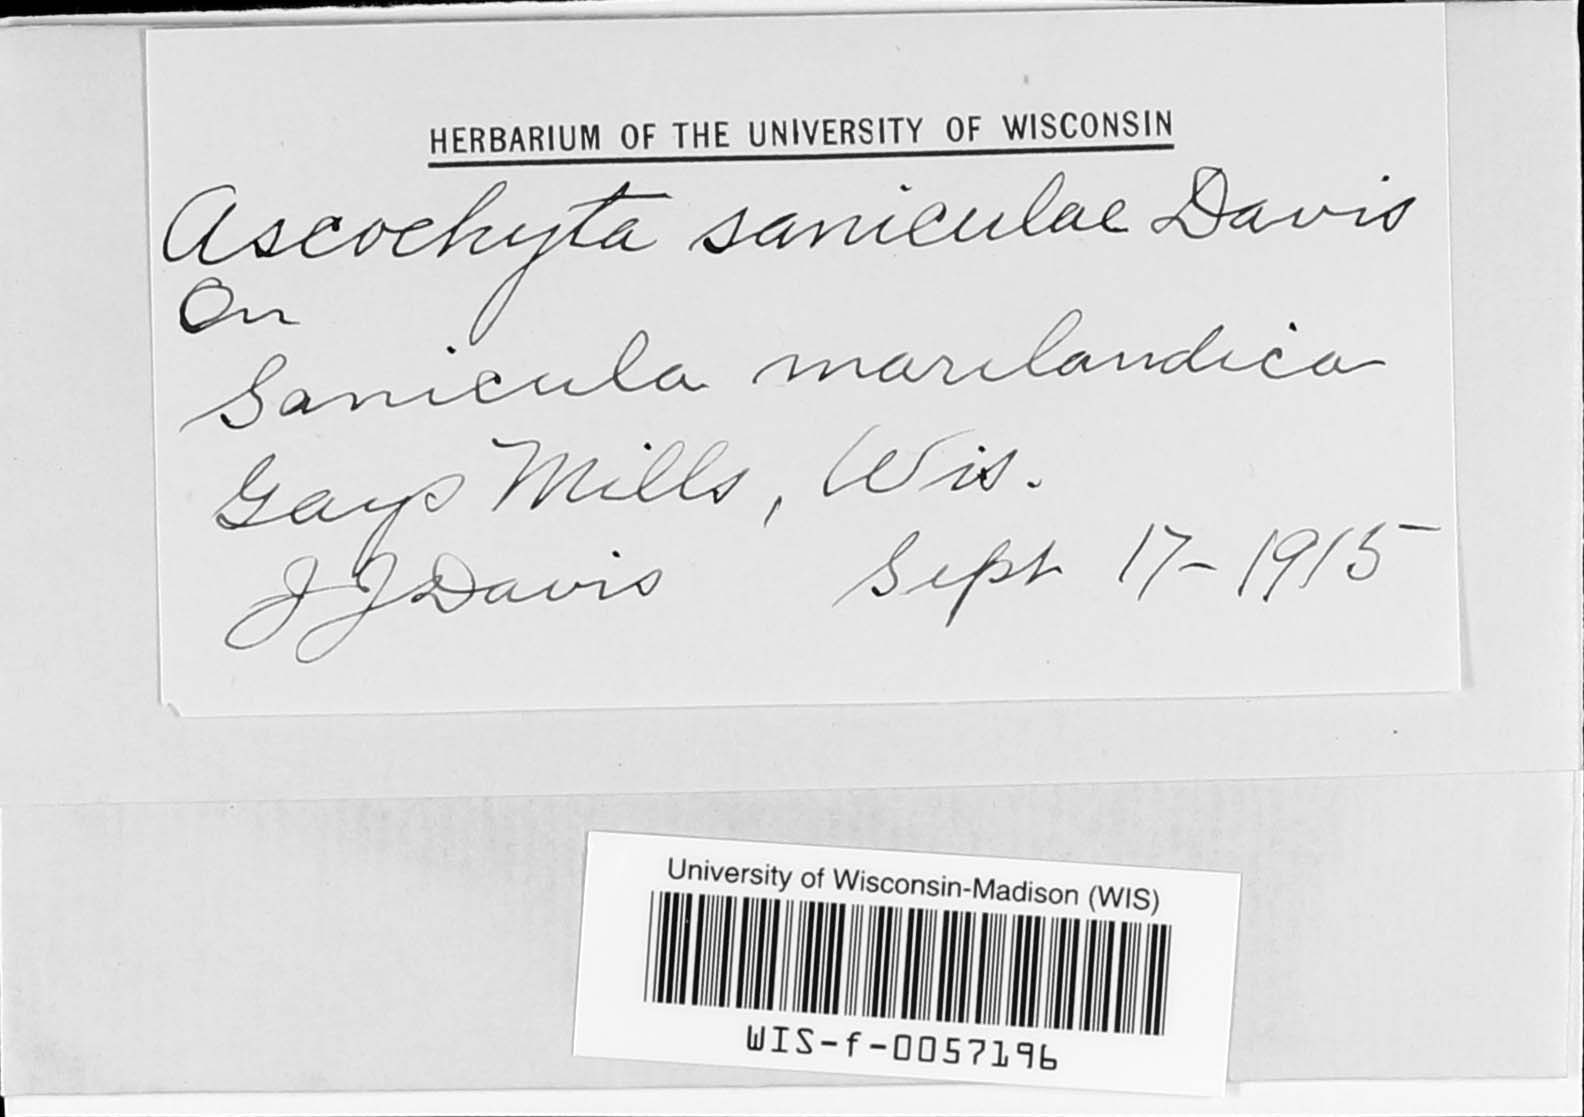 HERBARIUM OF THE UNIVERSITY OF WISCONSIN
Ascochyta saniculae Davis
On
Sanicula marilandica
Gays Mills, Wis.
J J Davis Sept 17-1915
University of Wisconsin-Madison (WIS)
WIS-f-0057196